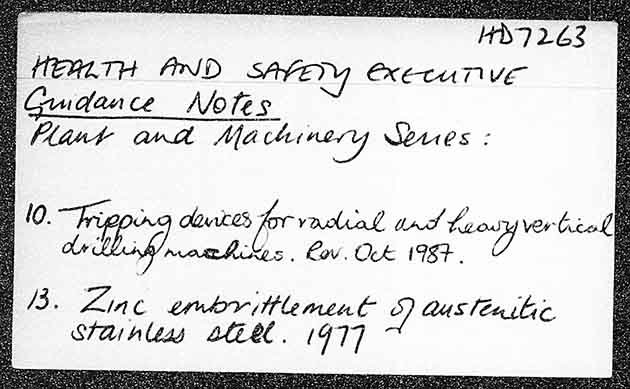 HD7263
HEALTH AND SAFETY EXECUTIVE
Guidance Notes
Plant and Machinery Series:
10. Tripping devices for radial and heavy vertical
drilling machines. Rev. Oct 1987.
13. Zinc embrittlement of austenitic
stainless steel. 1977